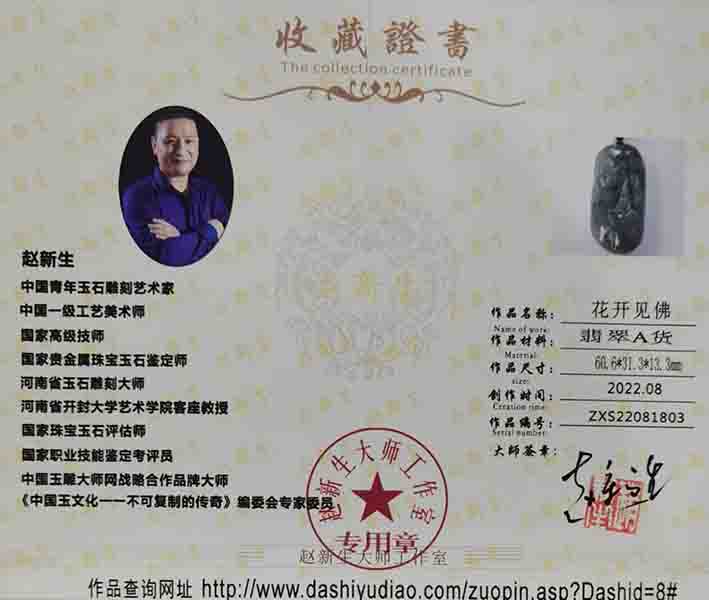 收藏證書
The collection certificate
赵新生
中国青年玉石雕刻艺术家
中国一级工艺美术师
国家高级技师
国家贵金属珠宝玉石鉴定师
河南省玉石雕刻大师
河南省开封大学艺术学院客座教授
国家珠宝玉石评估师
国家职业技能鉴定考评员
中国玉雕大师网战略合作品牌大师
《中国玉文化一一不可复制的传奇》编委会专家委员
作品名称: 花开见佛
Name of work:
作品材料: 翡翠A货
Material:
作品尺寸: 60.6*31.3*13.3mm
size:
创作时间: 2022.08
Creation time:
作品编号: ZXS22081803
Serial number:
大师签章:
赵新生
赵新生大师工作室
专用章
赵新生大师工作室
作品查询网址 http://www.dashiyudiao.com/zuopin.asp?Dashid=8#